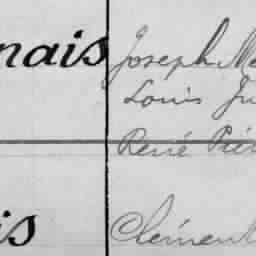 nais Joseph Me
Louis Ju
René Pier
is Clément